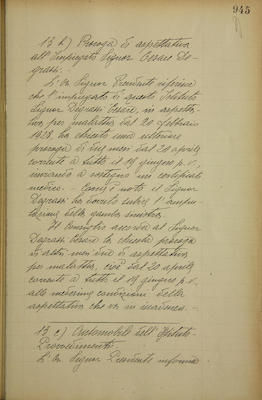 945
13 b) Proroga di aspettativa
all'Impiegato Signor Cesare De-
grassi.
L'On. Signor Presidente riferisce
che l'impiegato di questo Istituto
Signor Degrassi Cesare, in aspetta-
tiva per malattia dal 20 febbraio
1928, ha chiesto una ulteriore
proroga di due mesi dal 20 aprile
corrente a tutto il 19 giugno p.v.,
unendo a sostegno un certificato
medico. Com'è noto il Signor
Degrassi ha dovuto subire l'ampu-
tazione della gamba sinistra.
Il Consiglio accorda al Signor
Degrassi Cesare la chiesta proroga
di altri mesi due di aspettativa
per malattia, cioè dal 20 aprile
corrente a tutto il 19 giugno p.v.
alle medesime condizioni della
aspettativa che ora in
13 c) Automobile dell'Istituto-
Provvedimenti.
L'On. Signor Presidente informa